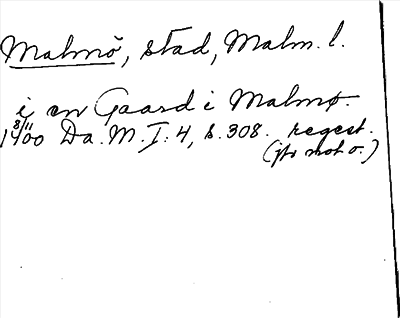 Malmö, stad, Malm. l.
i en Gaard i Malmø.
8/11
1400 Da. M. I: 4, s. 308. regest.
(jfr not o.)